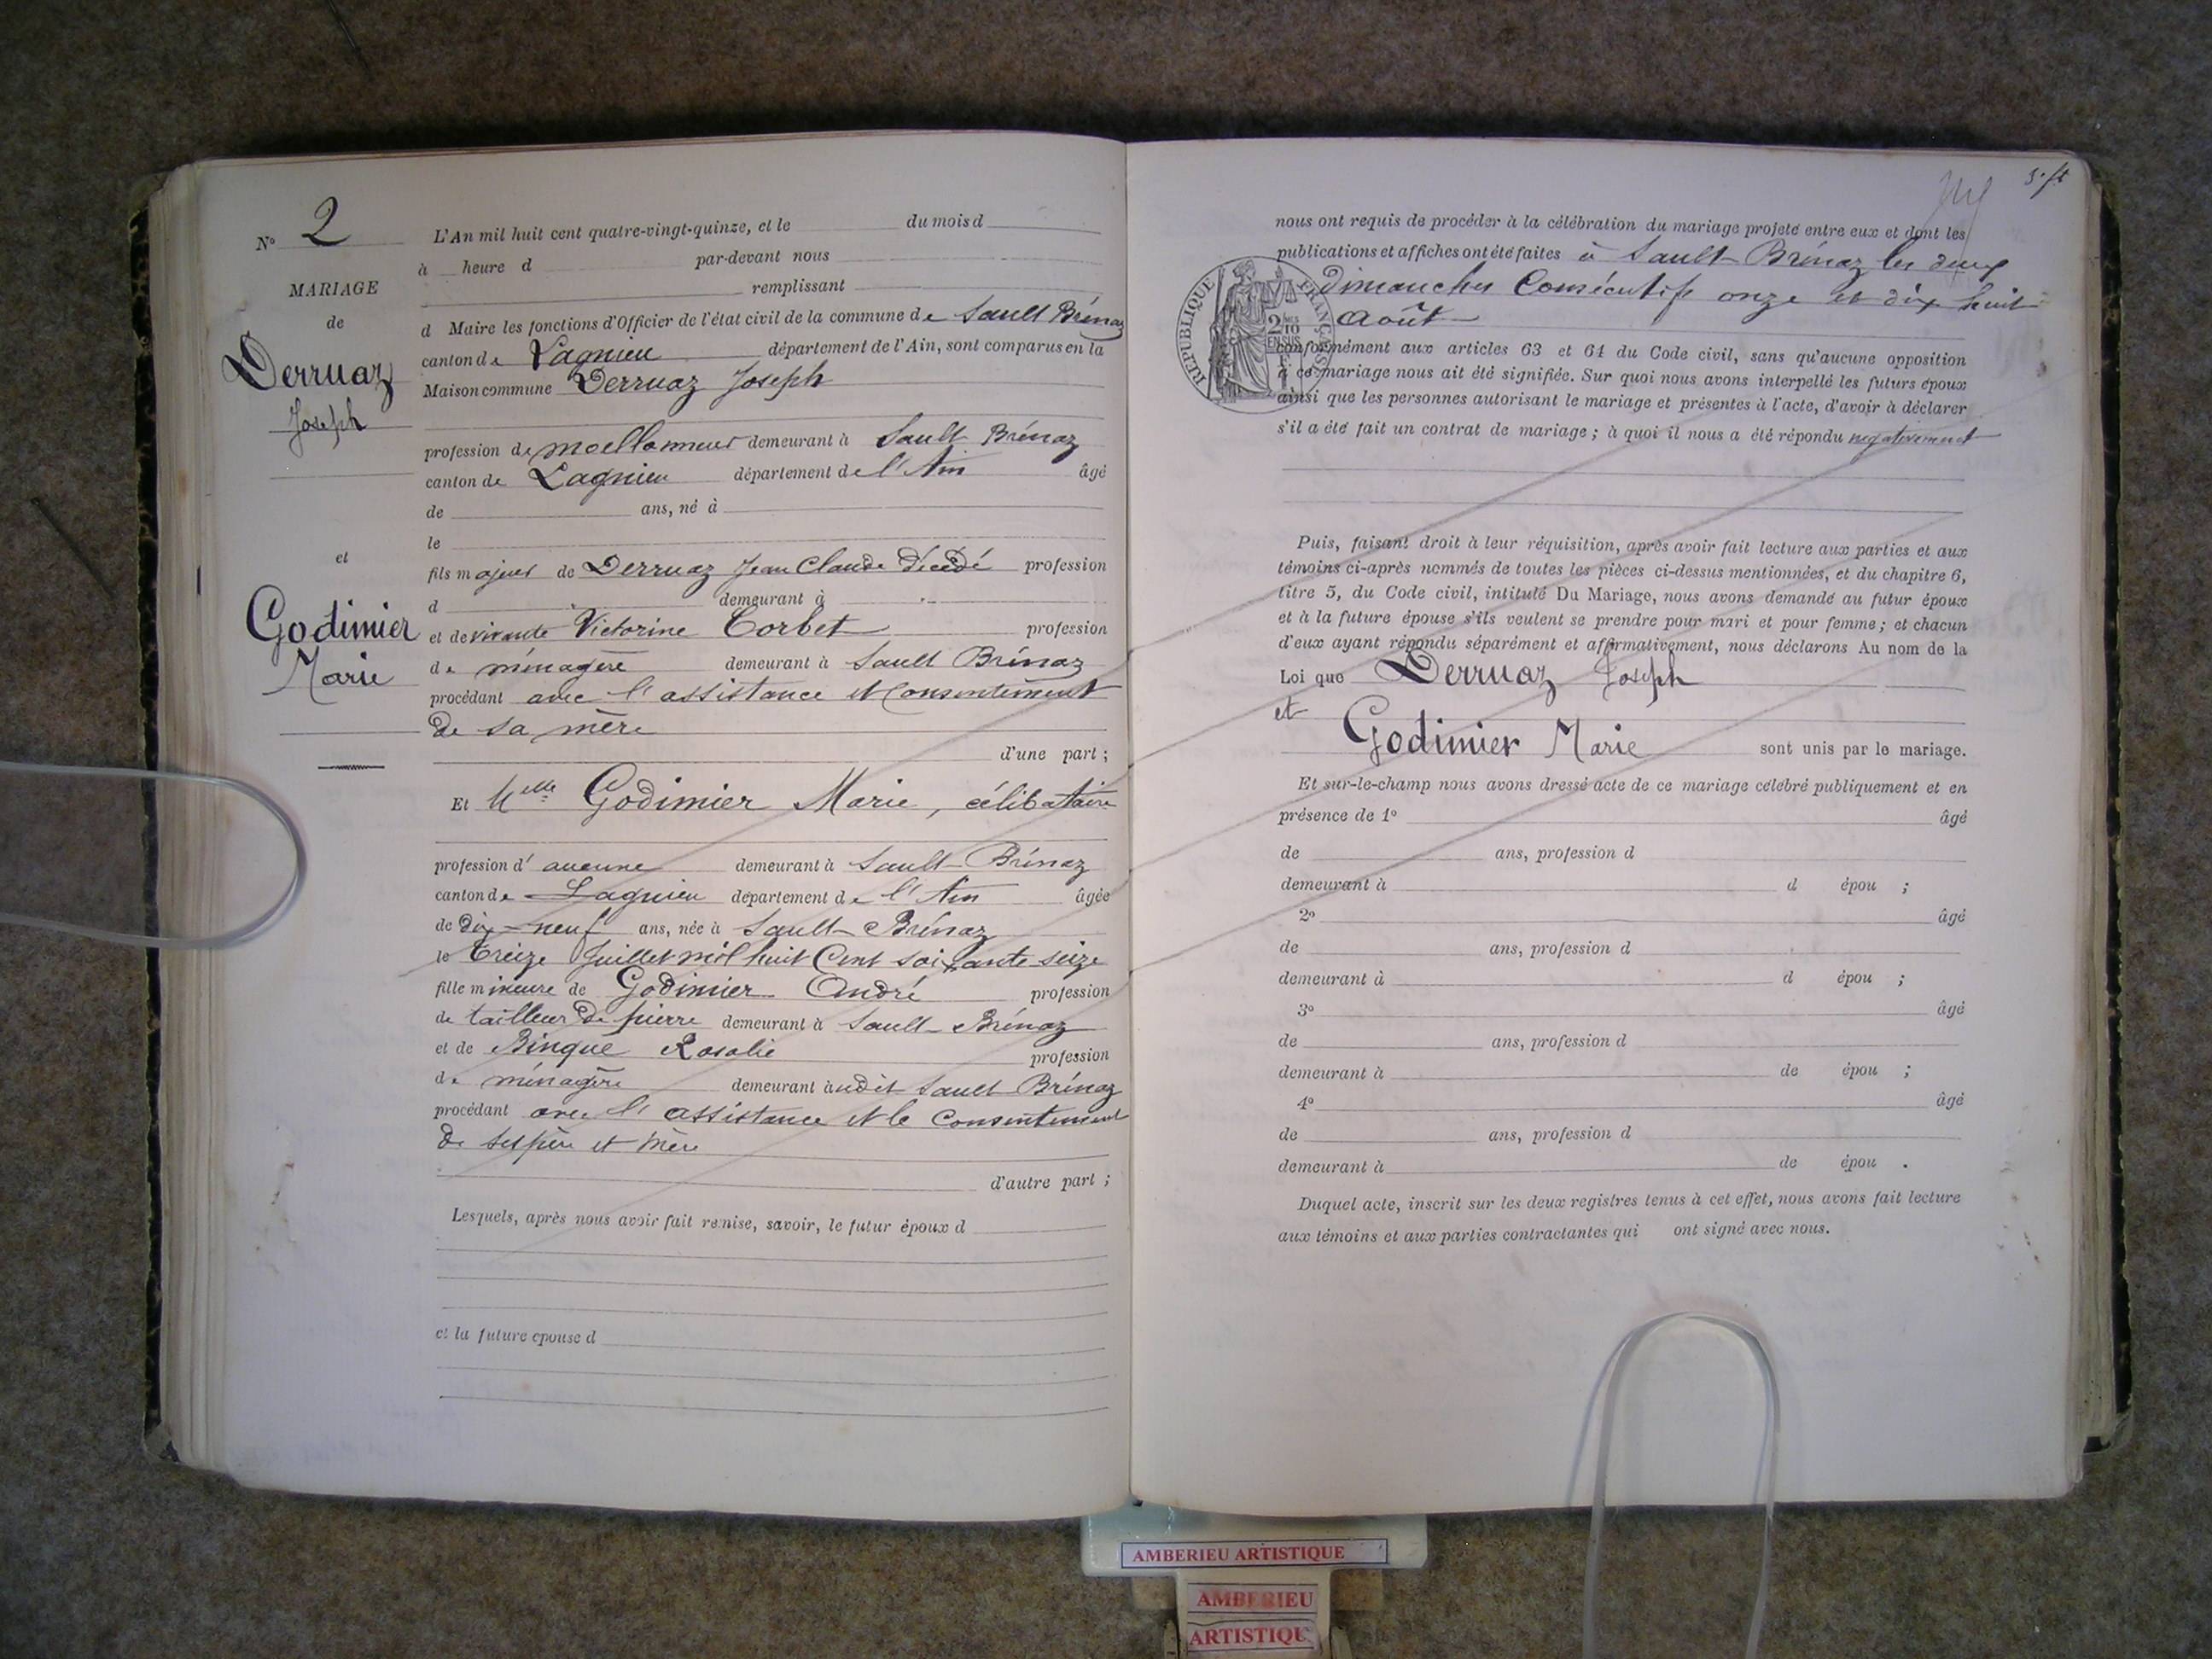 N° 2
MARIAGE
de
Derruaz
Joseph
et
Godimier
Marie
L'An mil huit cent quatre-vingt-quinze, et le du mois d
à heure d par-devant nous
remplissant
d Maire les fonctions d'Officier de l'état civil de la commune de Sault Brénaz
canton de Lagnieu département de l'Ain, sont comparus en la
Maison commune Derruaz Joseph
profession de moellonneur demeurant à Sault Brénaz
canton de Lagnieu département de l'Ain âgé
de ans, né à
le
fils majeur de Derruaz Jean Claude décédé profession
d demeurant à
et de vivante Victorine Corbet profession
de ménagère demeurant à Sault Brénaz
procédant avec l'assistance et consentement
de sa mère
d'une part ;
Et Melle Godimier Marie, célibataire
profession d'aucune demeurant à Sault-Brénaz
canton de Lagnieu département de l'Ain âgée
de dix-neuf ans, née à Sault-Brénaz
le treize Juillet mil huit Cent soixante seize
fille mineure de Godimier André profession
de tailleur de pierre demeurant à Sault-Brénaz
et de Binque Rosalie profession
de ménagère demeurant audit Sault Brénaz
procédant avec l'assistance et le Consentement
de ses père et mère
d'autre part ;
Lesquels, après nous avoir fait remise, savoir, le futur époux d
et la future épouse d
5e ft
nous ont requis de procéder à la célébration du mariage projeté entre eux et dont les
publications et affiches ont été faites à Sault-Brénaz les deux
dimanches Consécutifs onze et dix huit
Août
RÉPUBLIQUE FRANÇAISE
2 10mes EN SUS
conformément aux articles 63 et 64 du Code civil, sans qu'aucune opposition
à ce mariage nous ait été signifiée. Sur quoi nous avons interpellé les futurs époux
ainsi que les personnes autorisant le mariage et présentes à l'acte, d'avoir à déclarer
s'il a été fait un contrat de mariage ; à quoi il nous a été répondu négativement
Puis, faisant droit à leur réquisition, après avoir fait lecture aux parties et aux
témoins ci-après nommés de toutes les pièces ci-dessus mentionnées, et du chapitre 6,
titre 5, du Code civil, intitulé Du Mariage, nous avons demandé au futur époux
et à la future épouse s'ils veulent se prendre pour mari et pour femme ; et chacun
d'eux ayant répondu séparément et affirmativement, nous déclarons Au nom de la
Loi que Derruaz Joseph
et
Godimier Marie sont unis par le mariage.
Et sur-le-champ nous avons dressé acte de ce mariage célébré publiquement et en
présence de 1° âgé
de ans, profession d
demeurant à d épou ;
2° âgé
de ans, profession d
demeurant à d épou ;
3° âgé
de ans, profession d
demeurant à de épou ;
4° âgé
de ans, profession d
demeurant à de épou .
Duquel acte, inscrit sur les deux registres tenus à cet effet, nous avons fait lecture
aux témoins et aux parties contractantes qui ont signé avec nous.
AMBERIEU ARTISTIQUE
AMBERIEU
ARTISTIQUE